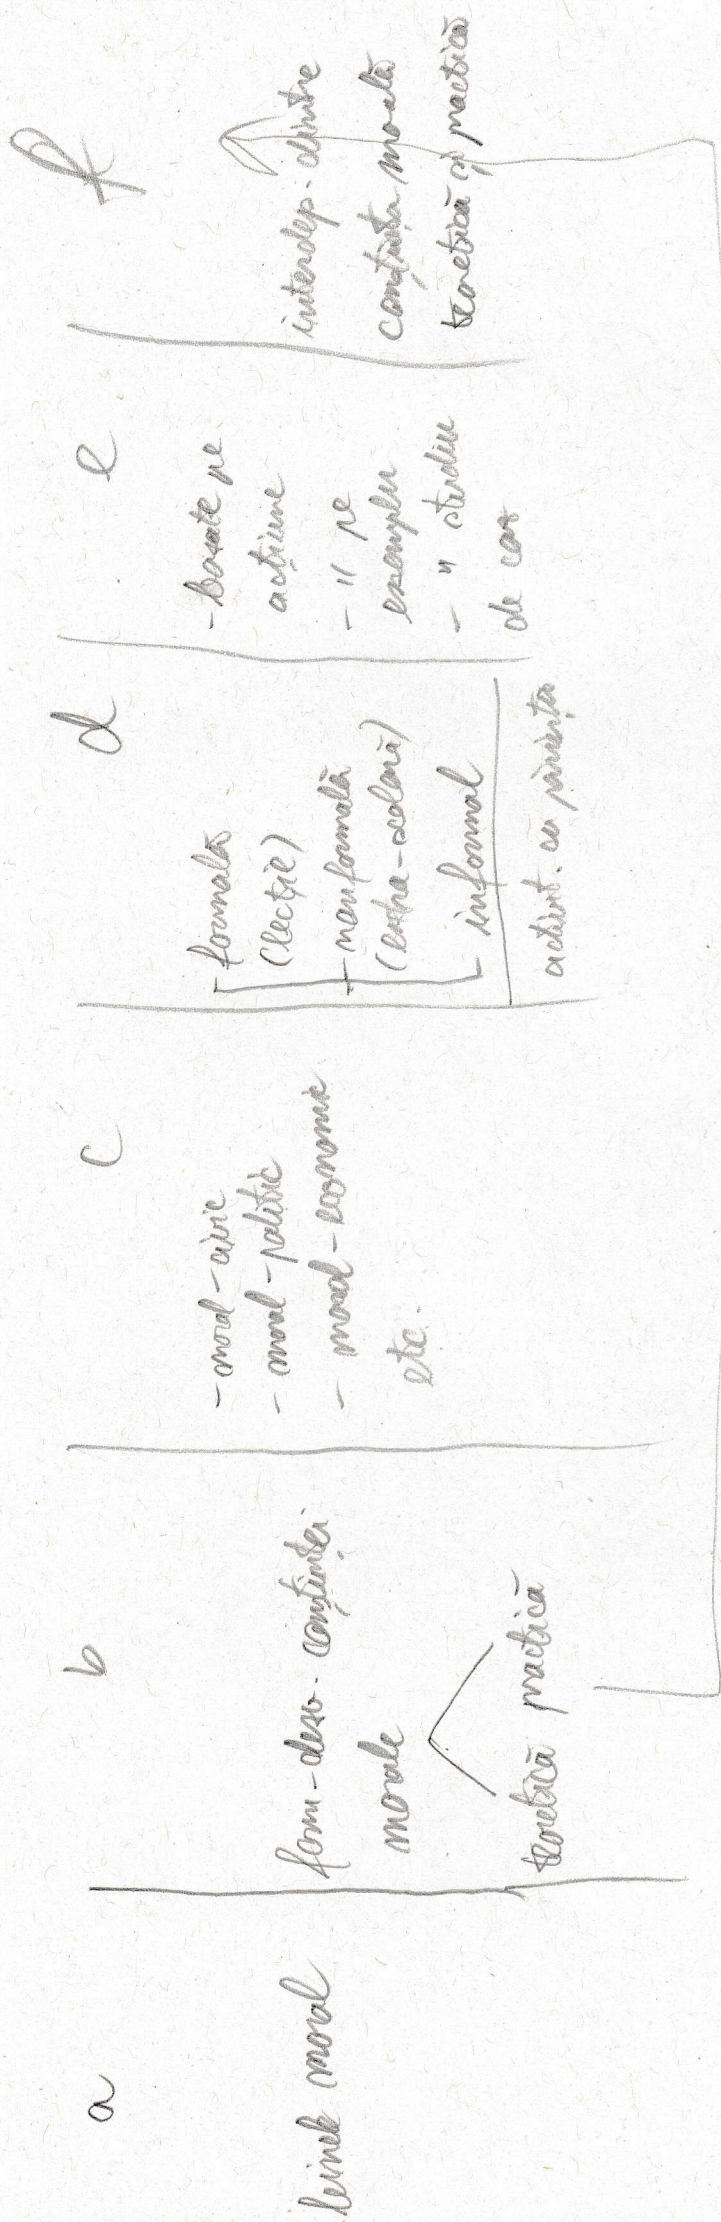 a
binele moral
b
form-dezv. conștiinței
morale
teoretică practică
c
- moral-civic
- moral-politic
- moral-economic
etc.
d
formală
(lecție)
nonformală
(extra-școlară)
informal
activit. cu părinții
e
- bazate pe
acțiune
- " pe
exemplu
- " studiu
de caz
f
interdep. dintre
conștiința morală
teoretică și practică